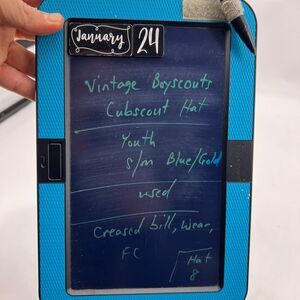 January 24
Vintage Boyscouts
Cubscout Hat
Youth
S/m Blue/Gold
used
Creased bill, Wear,
FC
Hat
8